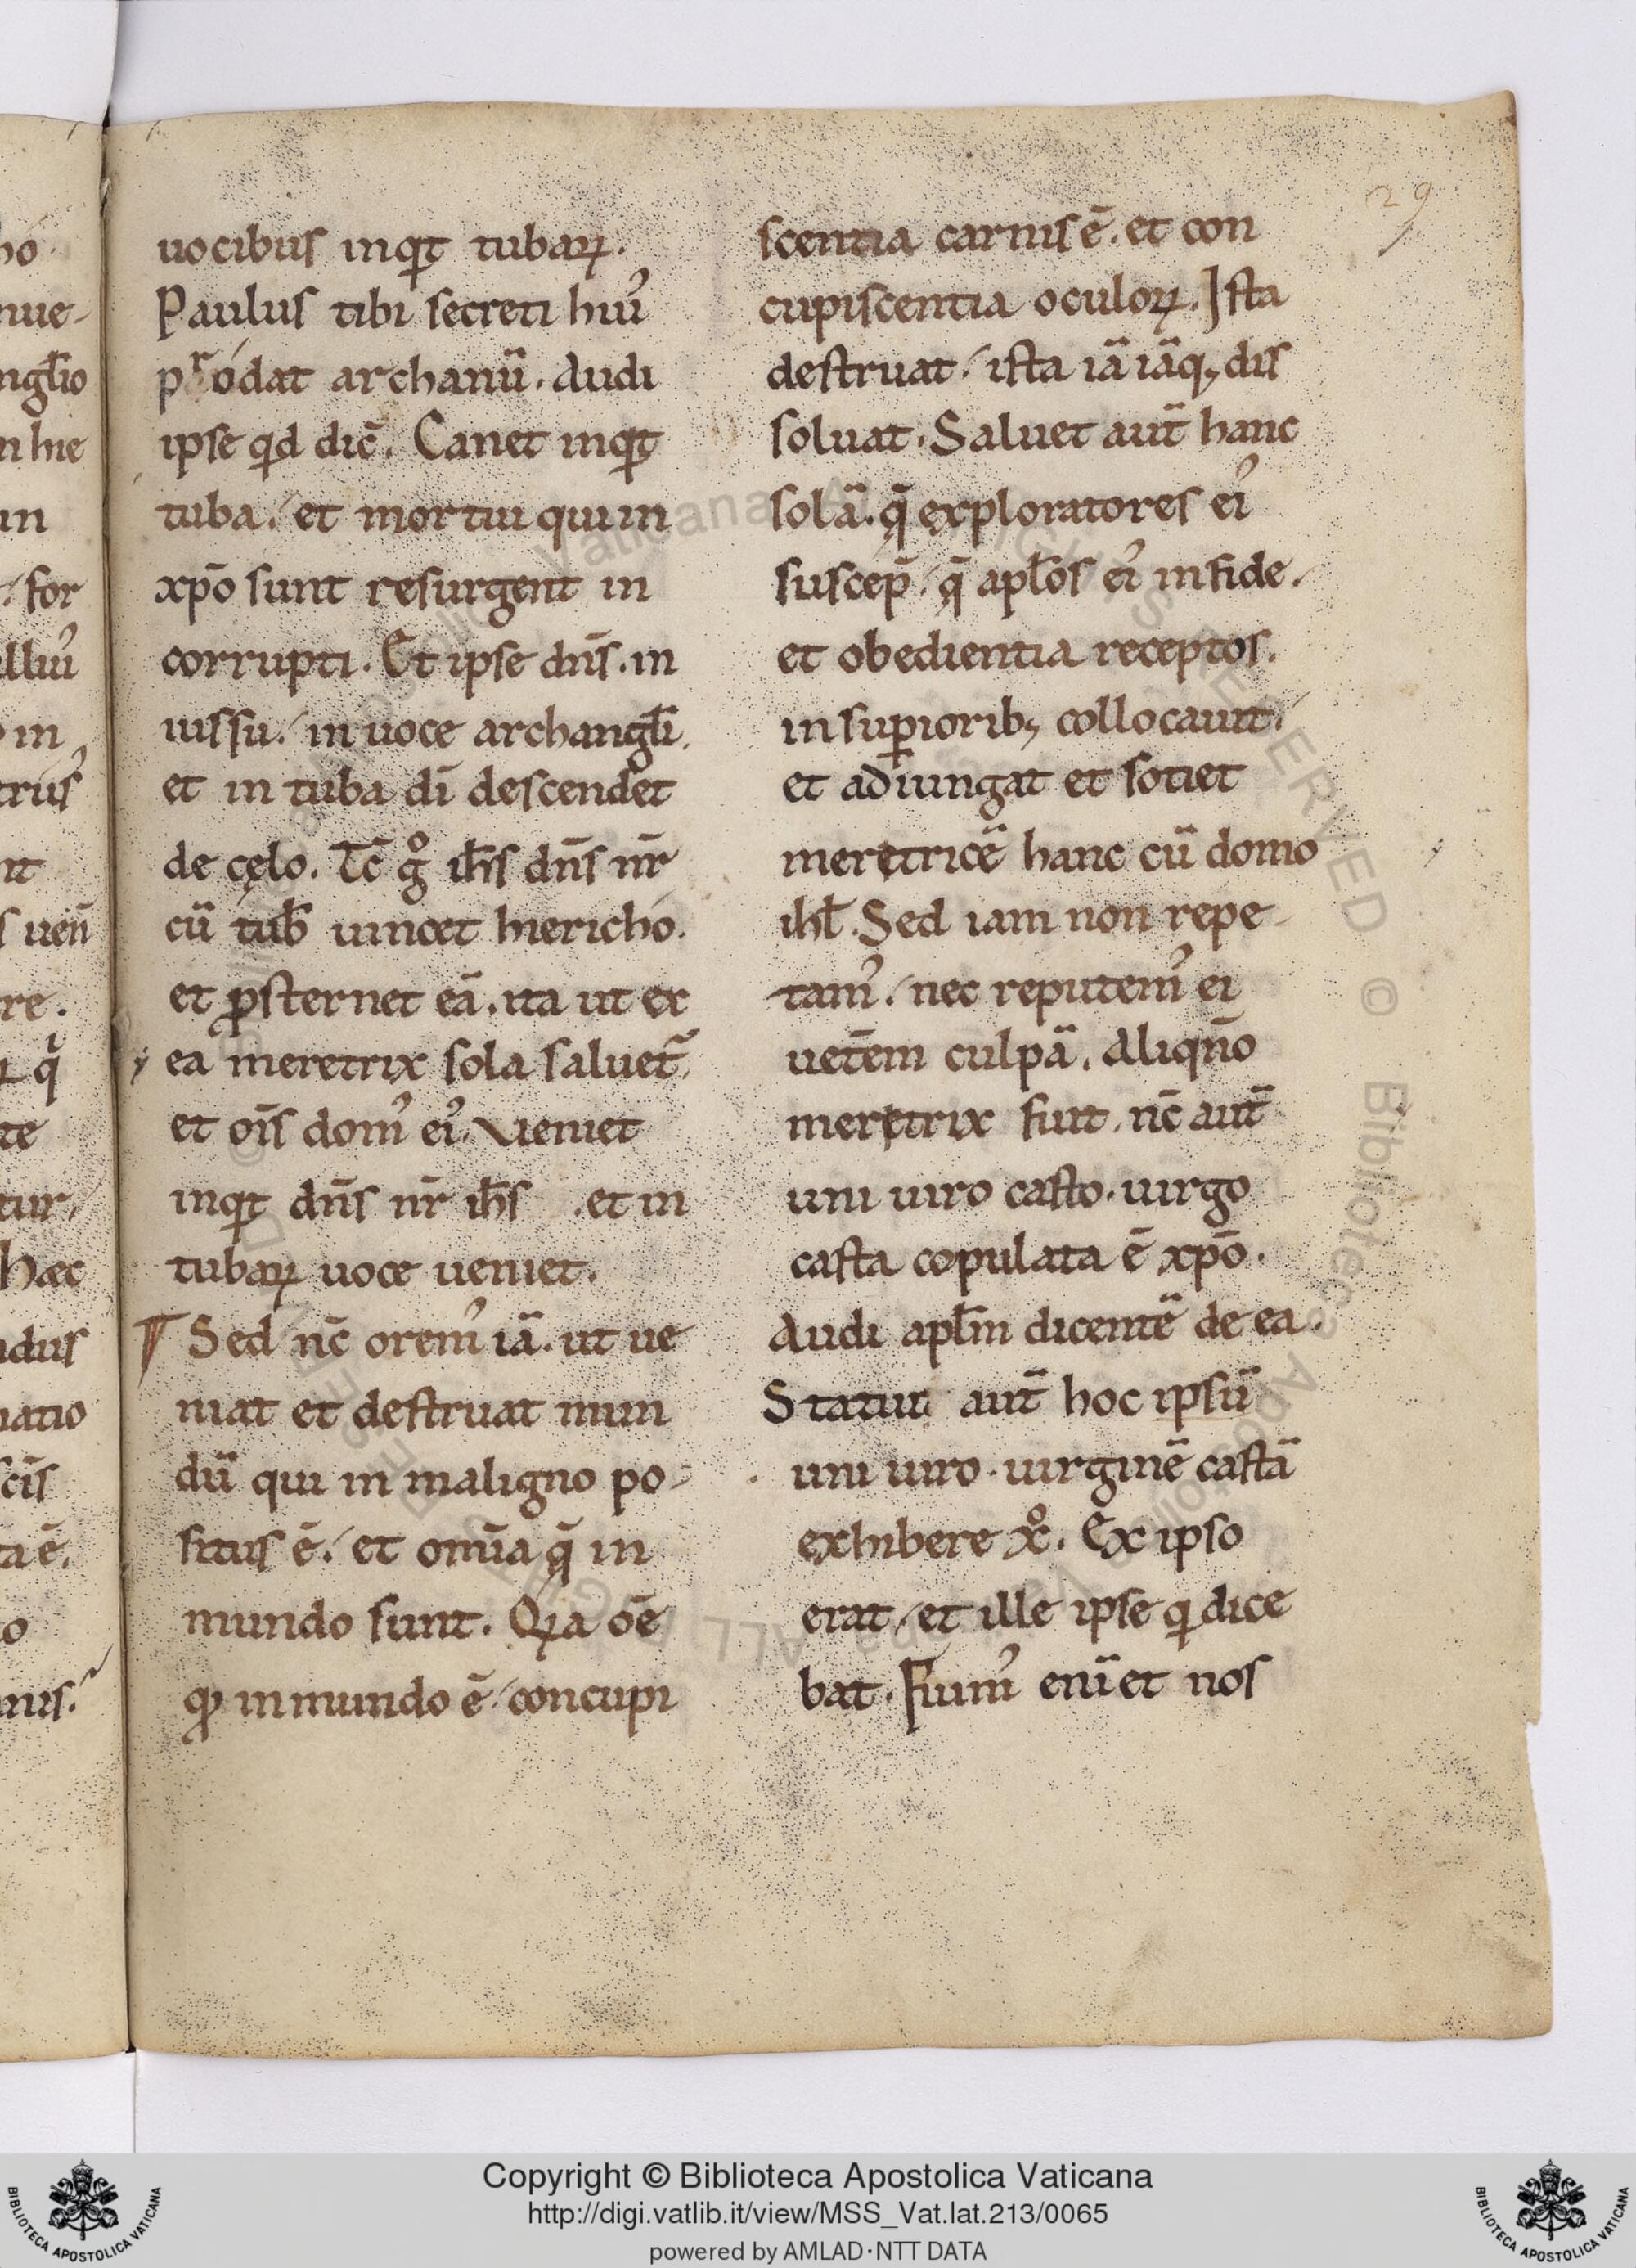 29
uocibus inqͥt tubaꝝ.
Paulus tibi secreti huiꝰ
pͬodat archanū. Audi
ipse qͥd dic̄. Canet inqͥt
tuba. et mortui qui in
xp̄o sunt resurgent in
corrupti. Et ipse dn̄s. in
iussu. in uoce archangƚi.
et in tuba dī descendet
de cęlo. Tc̄ gͦ ih̄s dn̄s nr̄
cū tub̄ uincet hiericho.
et ꝓsternet eā. ita ut ex
ea meretrix sola saluet᷑.
et oīs domꝰ eiꝰ. Veniet
inqͥt dn̄s nr̄ ih̄s . et in
tubaꝝ uoce ueniet.
¶ Sed nc̄ oremꝰ iā. ut ue
niat et destruat mun
dū qui in maligno po-
situs ē. et om̄ia q̄ in
mundo sunt. Qꝛa oē
qͦ in mundo ē concupi
scentia carnis ē. et con
cupiscentia oculoꝝ. Ista
destruat. ista iā iāqꝫ dis
soluat. Saluet aut̄ hanc
solā. q̄ exploratores eiꝰ
suscep̄. q̄ apƚos eiꝰ in fide.
et obedientia receptos.
in suꝑioribꝫ collocauit.
et adiungat et sotiet
meretricē hanc cū domo
ihƚ. Sed iam non repe
tamꝰ. nec reputemꝰ ei
uetēm culpā. Aliqn̄o
meretrix fuit. nc̄ aut̄
uni uiro casto. uirgo
casta copulata ē xp̄o.
Audi apƚm dicentē de ea.
Statui aut̄ hoc ipsū
uni uiro. uirginē castā
exhibere xͦ. Ex ipso
erat. et ille ipse qͥ dice
bat. Fuimꝰ enī et nos
Copyright © Biblioteca Apostolica Vaticana
http://digi.vatlib.it/view/MSS_Vat.lat.213/0065
powered by AMLAD·NTT DATA
BIBLIOTECA APOSTOLICA VATICANA
BIBLIOTECA APOSTOLICA VATICANA